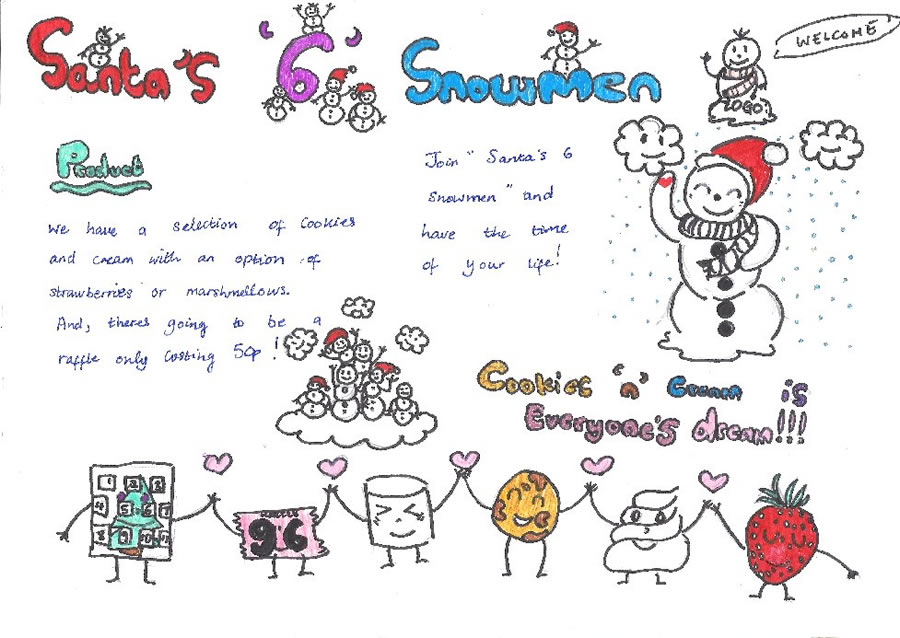 Santa's '6' Snowmen
WELCOME
LOGO
Product
We have a selection of Cookies
and cream with an option of
strawberries or marshmellows.
And, theres going to be a
raffle only costing 50p!
Join "Santa's 6
Snowmen" and
have the time
of your life!
Cookies 'n' Cream is
Everyone's dream!!!
1 2 3
4 5 6 7
8 9 10 11
96